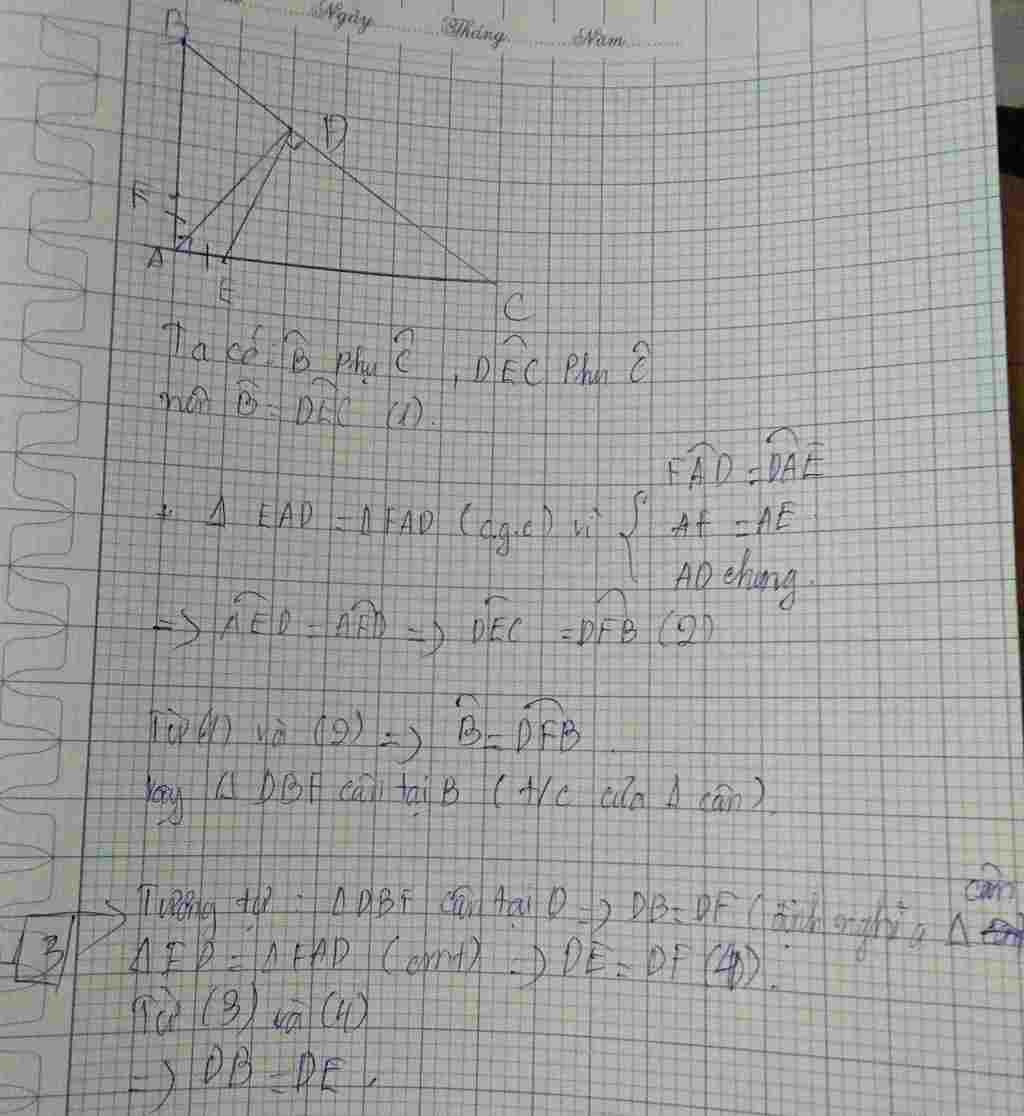 Ngày Tháng Năm
B
D
F
A
E
C
Ta có: B̂ phụ Ĉ, DÊC phụ Ĉ
nên B̂ = DÊC (1).
FÂD = DÂE
+ Δ EAD = Δ FAD (c.g.c) vì { AF = AE
AD chung.
=> AÊD = AF̂D => DÊC = DF̂B (2)
Từ (1) và (2) => B̂ = DF̂B.
hay Δ DBF cân tại B (t/c của Δ cân).
cân
Tương tự: Δ DBF cân tại D => DB = DF (định nghĩa Δ
3
Δ ED = Δ FAD (cmt) => DE = DF (4).
Từ (3) và (4)
=> DB = DE.